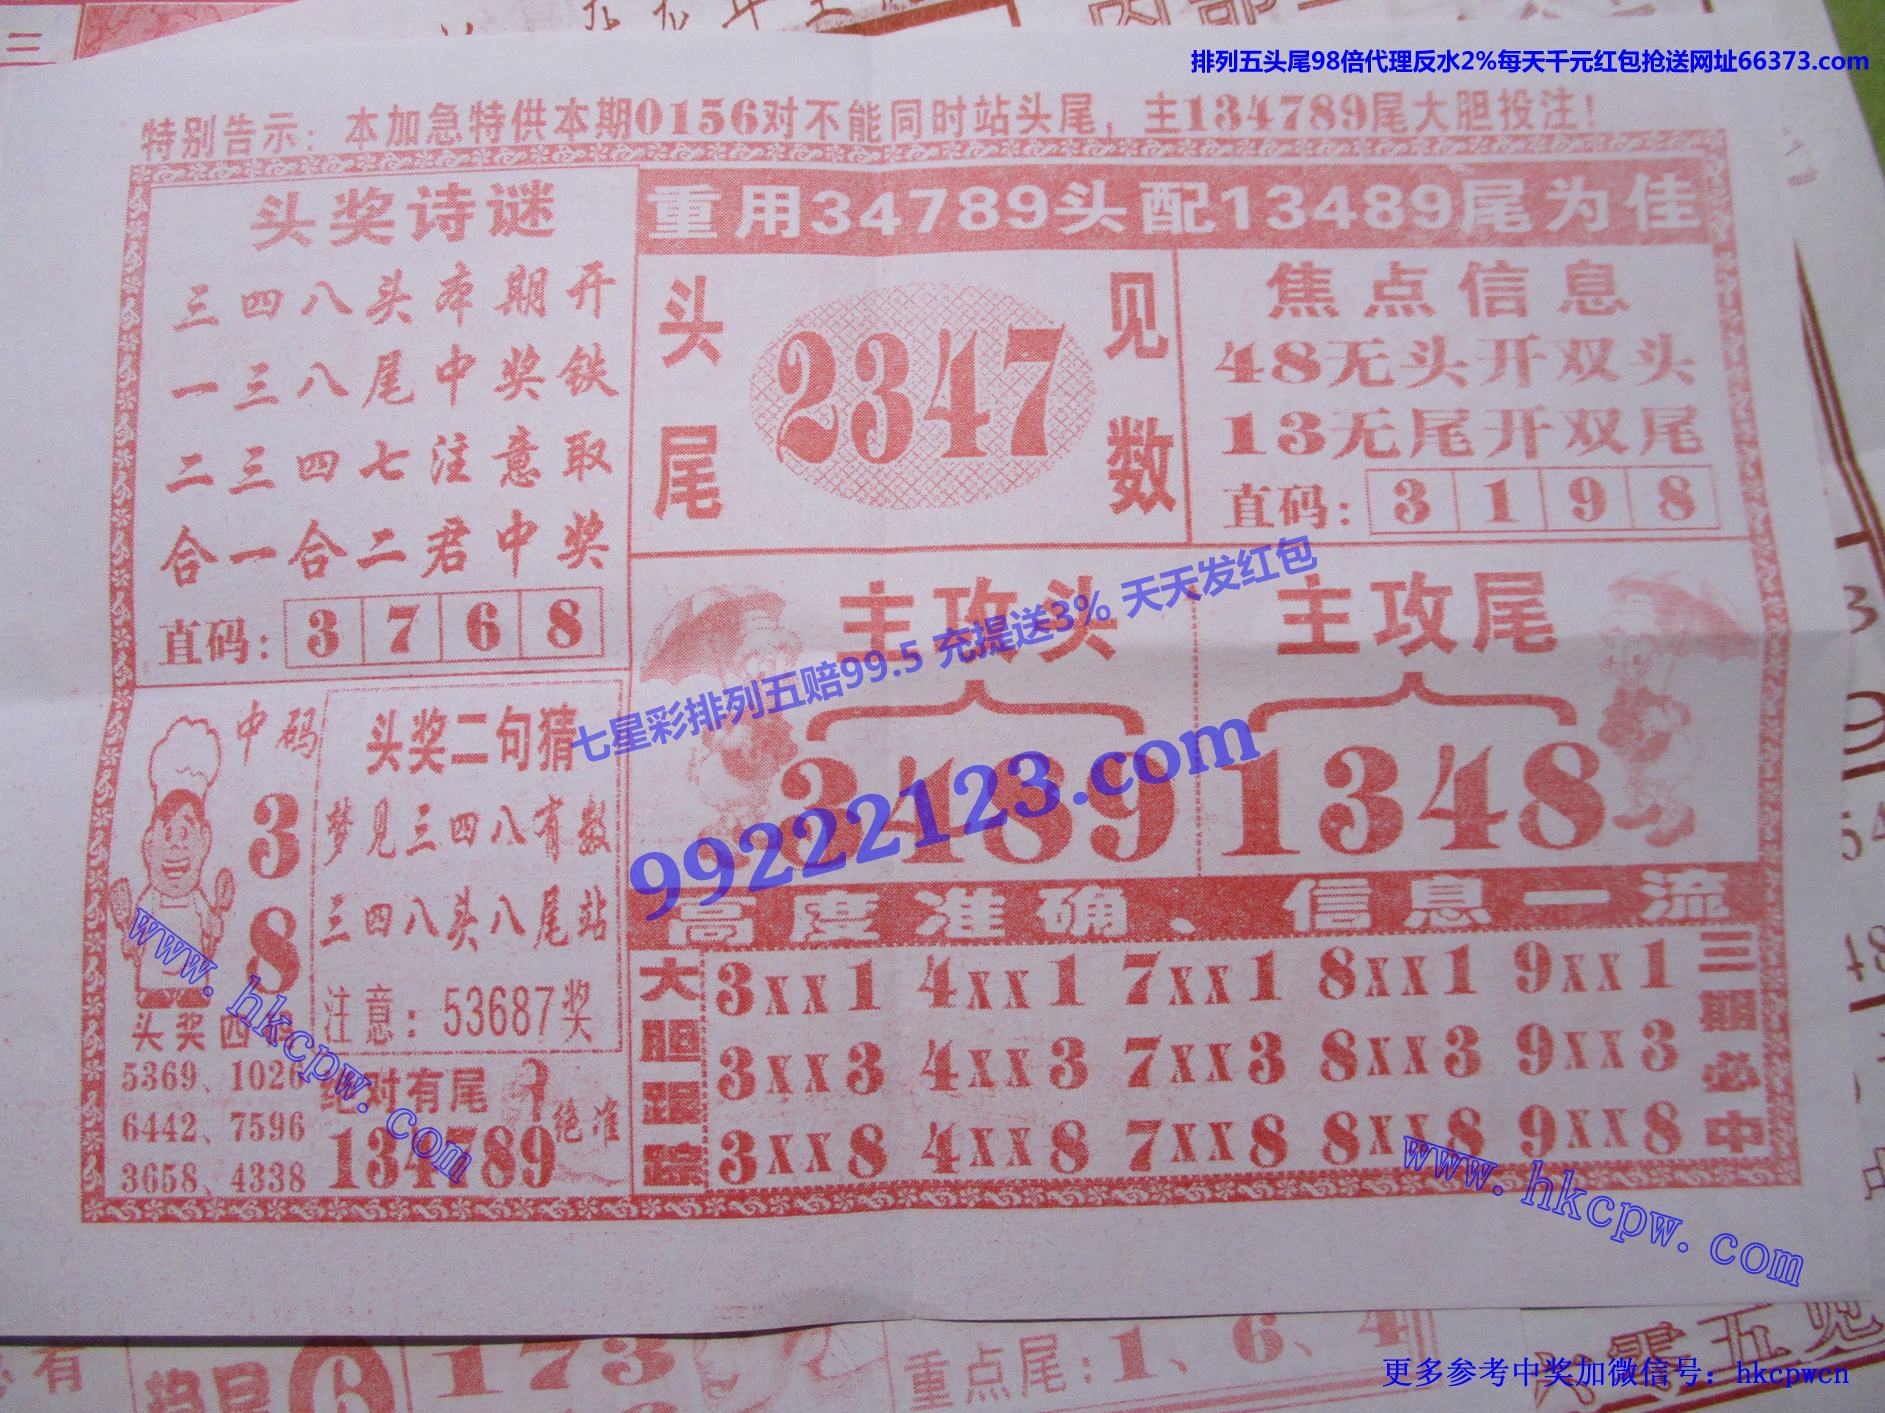 排列五头尾98倍代理反水2%每天千元红包抢送网址66373.com
特别告示：本加急特供本期0156对不能同时站头尾，主134789尾大胆投注！
头奖诗谜
三四八头本期开
一三八尾中奖铁
二三四七注意取
合一合二君中奖
直码：3 7 6 8
重用34789头配13489尾为佳
头尾 2347 见数
焦点信息
48无头开双头
13无尾开双尾
直码：3 1 9 8
主攻头
3489
主攻尾
1348
七星彩排列五赔99.5 充提送3% 天天发红包
99222123.com
中码
3
8
头奖二句猜
梦见三四八有数
三四八头八尾站
注意：53687奖
头奖四
5369、1026
6442、7596
3658、4338
绝对有尾
134789
绝准
高度准确、信息一流
大胆跟踪
3xx1 4xx1 7xx1 8xx1 9xx1
3xx3 4xx3 7xx3 8xx3 9xx3
3xx8 4xx8 7xx8 8xx8 9xx8
三期必中
www.hkcpw.com
www.hkcpw.com
有
6
173
重点尾：1、6、4
零五见
更多参考中奖加微信号：hkcpwcn